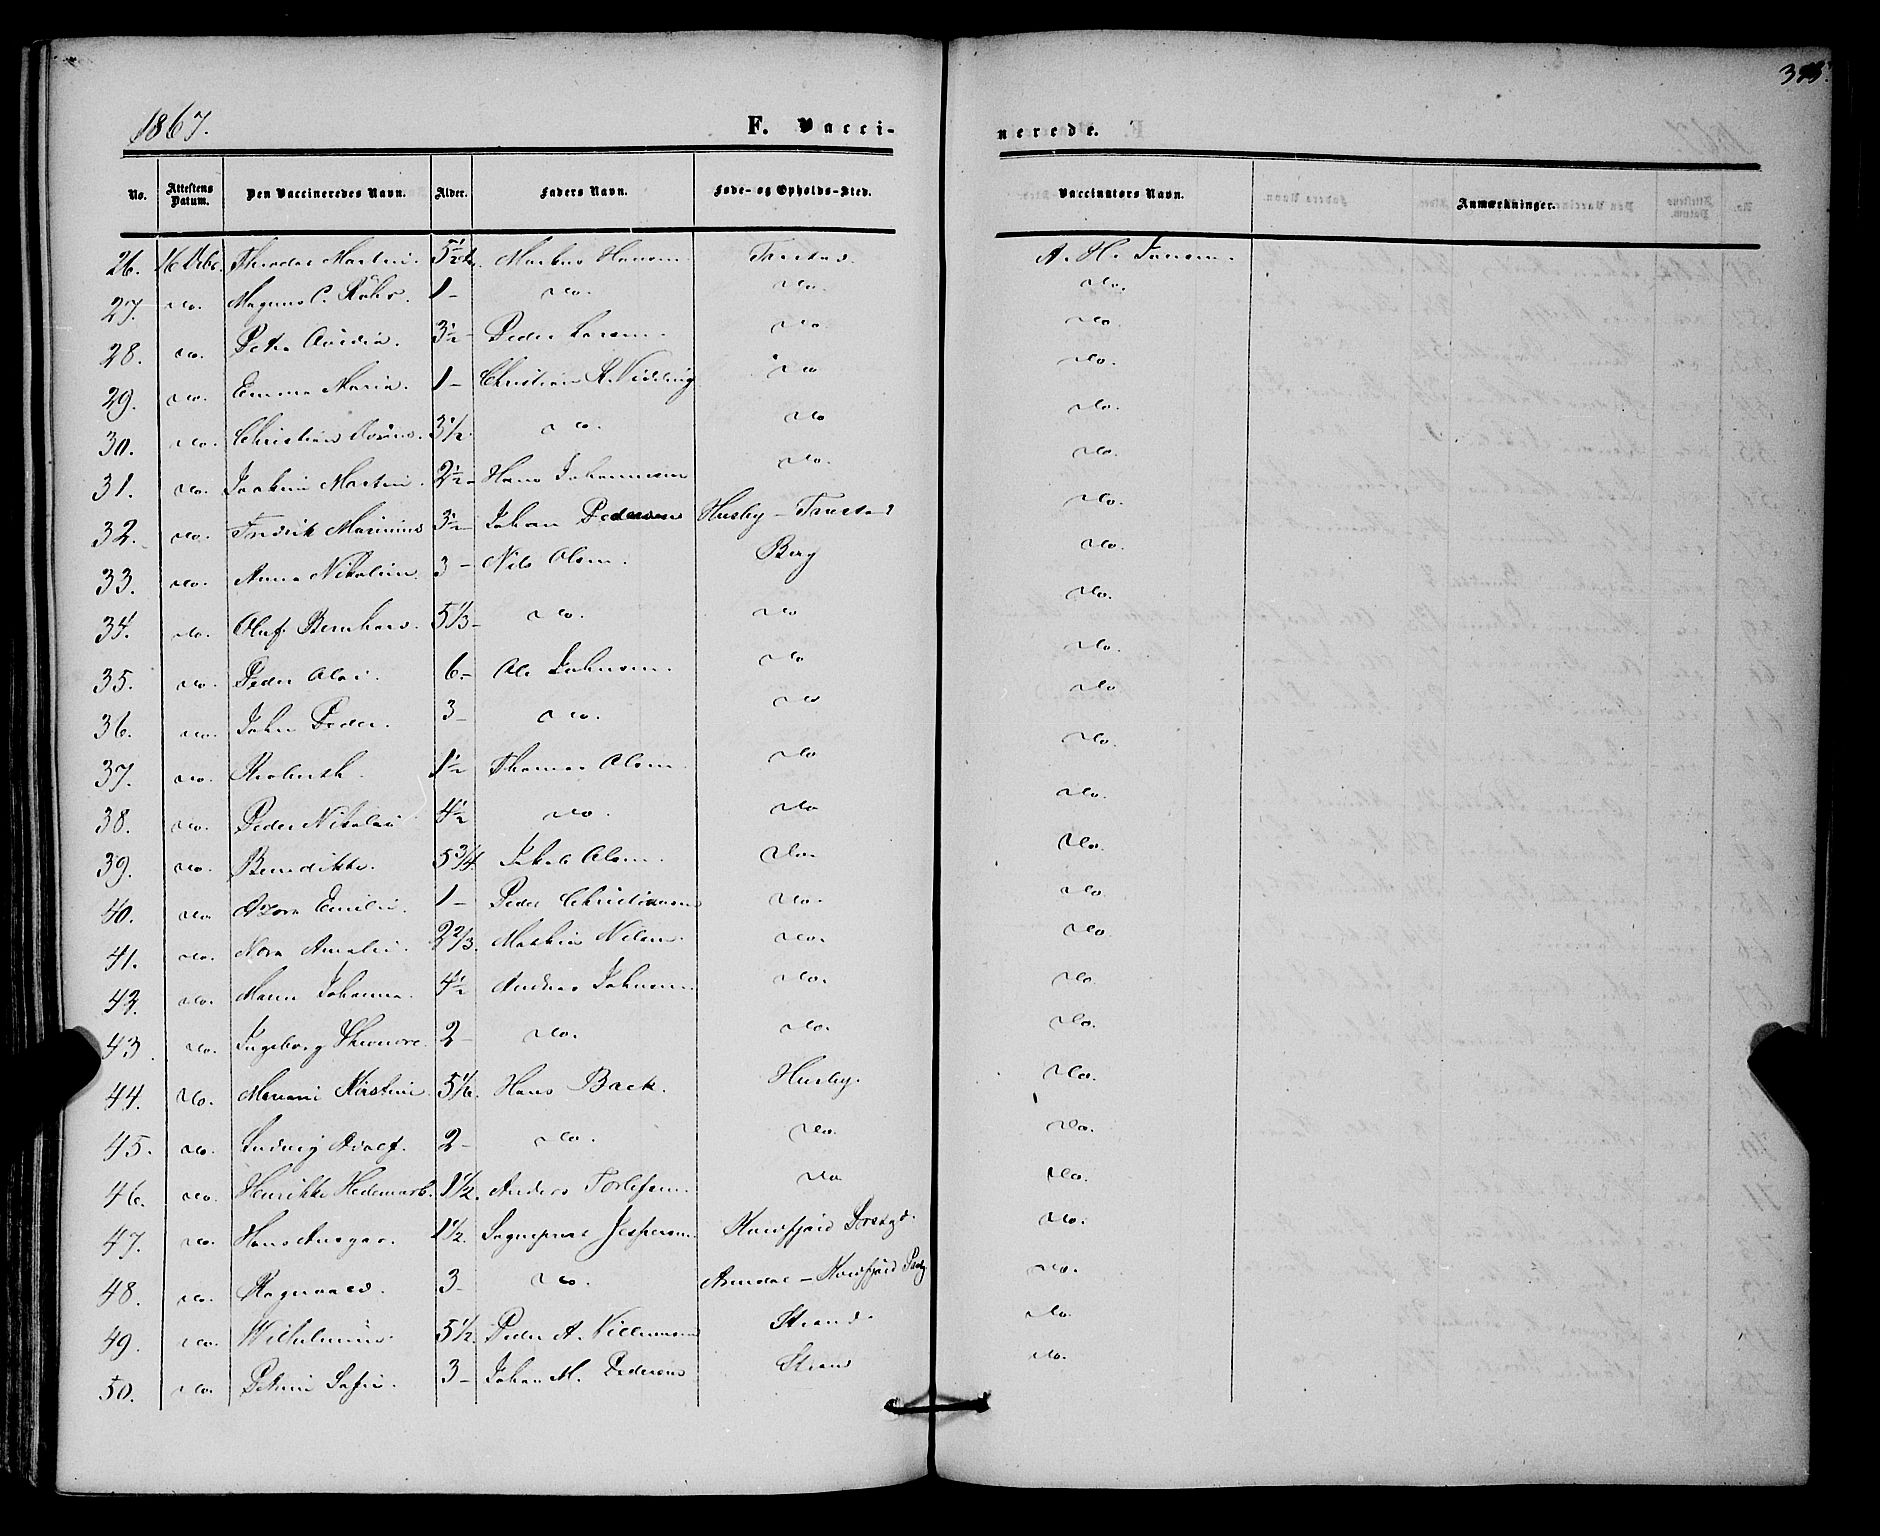 375.
1867.
F. Vacci-
nerede.
No. Attestens Datum. Den Vaccineredes Navn. Alder. Faders Navn. Føde- og Opholds-Sted. Vaccinators Navn. Anmærkninger.
26. 5½ Markus Hansen Tanstad A. H. Jansen.
27. do. Magnus C. 1 – do. do. do.
28. do. Petra 3½ – Peder Larsen. do do.
29. do. Emma Maria. 1 – Christian do do.
30. do. Christian 3½ do. do do.
31. do. Joakim Martin 2½ – Hans Johannesen do. do.
32. do. Fredrik Marinius 3½ – Johan Pedersen Husby – Tanstad do.
33. do. Anna Nikoline. 3 – Nils Olsen. Berg do.
34. do. Oluf Bernhard. 5⅓ – do. do do.
35. do. Peder Olai. 6 – Ole Johnsen. do do.
36. do. John Peder. 3 – do. do do
37. do. 1½ Thomas Olsen. do do.
38. do. Peder Nikolai 4½ do. do do.
39. do. Benedikte. 5¾. Jakob Olsen. do. do.
40. do. Emilie. 1 – Peder Christiansen do. do.
41. do. Nora Amalie. 2⅔. Mathias Nilsen. do. do.
42. do. Maren Johanna. 4½ Andreas Johnsen. do. do.
43. do. Ingeborg 2 – do. do. do.
44. do. Mariane Kirstine 5⅙. Hans Back. Husby. do.
45. do. Ludvig Adolf. 2 – do. do. do.
46. do. Henrikke Hedemark. 1½. Anders Torlefsen. do do.
47. do. Hans Ansgar. 1½. Jespersen do.
48. do. Ragnvald. 3 – do. do.
49. do. Wilhelmine. 5½. Peder A. Strand. do.
50. do. Petrine Sofie. 3 – Johan M. Pedersen Strand do.